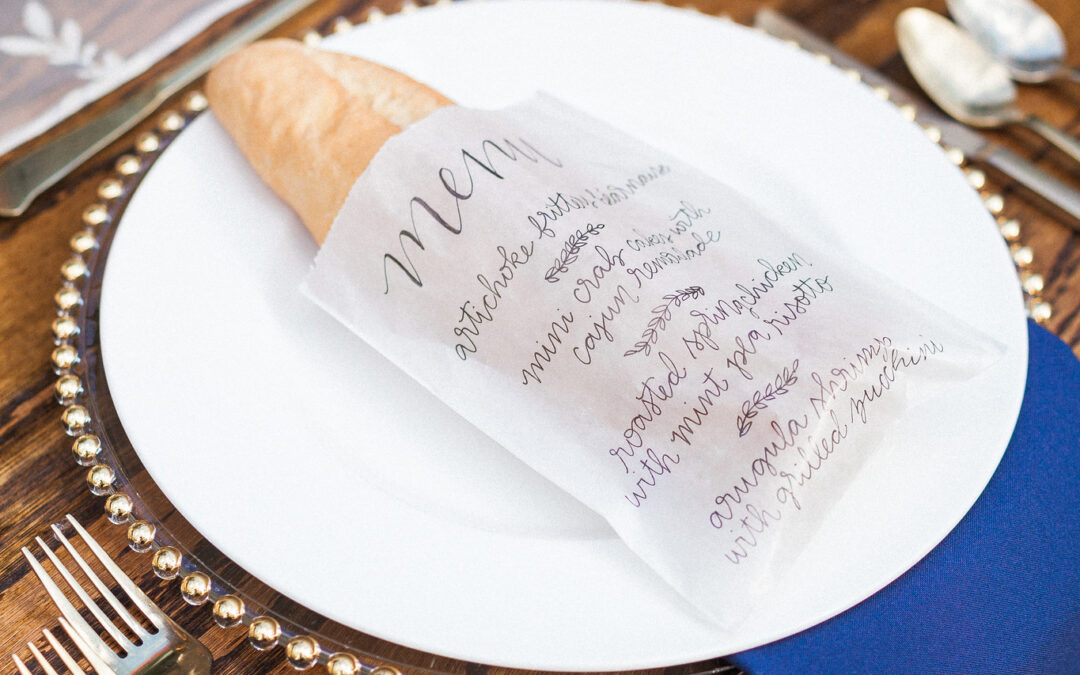 menu
artichoke fritters
mini crab cakes with
cajun remilade
roasted spring chicken
with mint pea risotto
arugula shrimp
with grilled zucchini